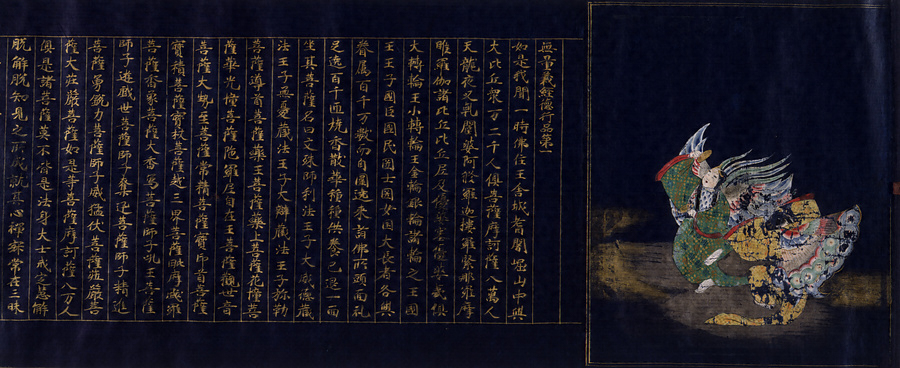 無量義經德行品第一
如是我聞一時佛住王舍城耆闍崛山中與
大比丘衆万二千人俱菩薩摩訶薩八萬人
天龍夜叉乾闥婆阿脩羅迦樓羅緊那羅摩
睺羅伽諸比丘比丘尼及優婆塞優婆夷俱
大轉輪王小轉輪王金輪銀輪諸輪之王國
王王子國臣國民國士國女國大長者各與
眷属百千万數而自圍遶来詣佛所頭面礼
足遶百千匝燒香散華種種供養已退一面
坐其菩薩名曰文殊師利法王子大威德藏
法王子無憂藏法王子大辯藏法王子弥勒
菩薩導首菩薩藥王菩薩藥上菩薩花幢菩
薩華光幢菩薩陁羅尼自在王菩薩觀世音
菩薩大勢至菩薩常精進菩薩寶印首菩薩
寶積菩薩寶杖菩薩越三界菩薩毗摩跋羅
菩薩香象菩薩大香象菩薩師子吼王菩薩
師子遊戲世菩薩師子奮迅菩薩師子精進
菩薩勇銳力菩薩師子威猛伏菩薩莊嚴菩
薩大莊嚴菩薩如是等菩薩摩訶薩八万人
俱是諸菩薩莫不皆是法身大士戒定慧解
脫解脫知見之所成就其心禪寂常在三昧